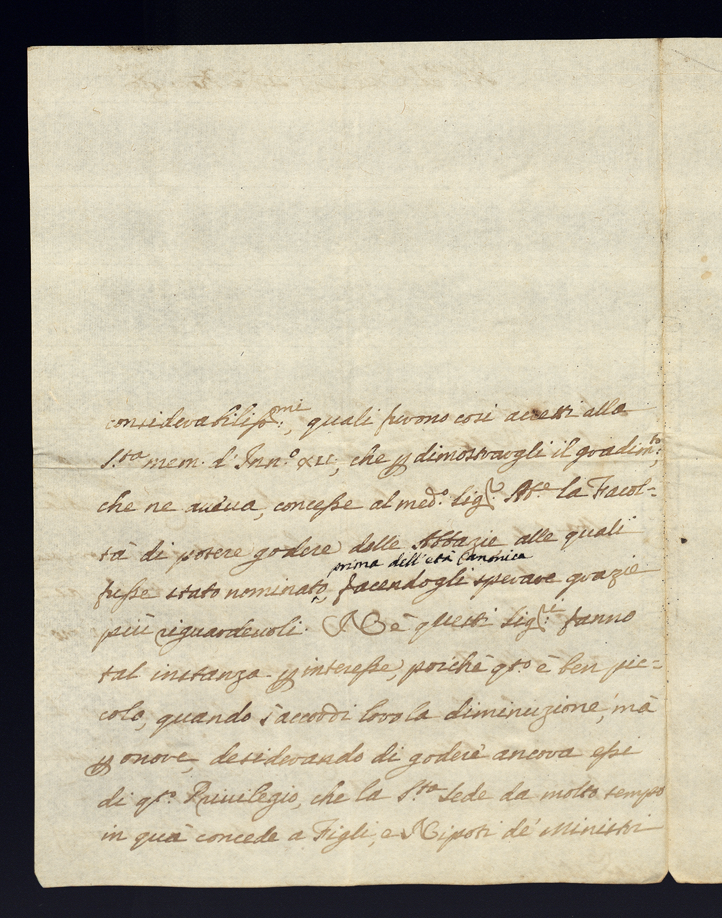 considerabiliss.mi, quali furono così accetti alla
S.ta mem. d'Inn.o XII, che p dimostrargli il gradim.to,
che ne aueua, concesse al med.o Sig.r Ab.e la Facol=
tà di potere godere delle Abbazie alle quali
prima dell'età Canonica
fusse stato nominato, facendogli sperare grazie
più riguardeuoli. Nè questi Sig.ri fanno
tal instanza p interesse, porchè q.to è ben pic=
colo, quando s'accordi loro la diminuzione, mà
p onore, desiderando di godere ancora essi
di q.to Priuilegio, che la S.ta Sede da molto tempo
in quà concede a Figli, e Nipoti de' Ministri